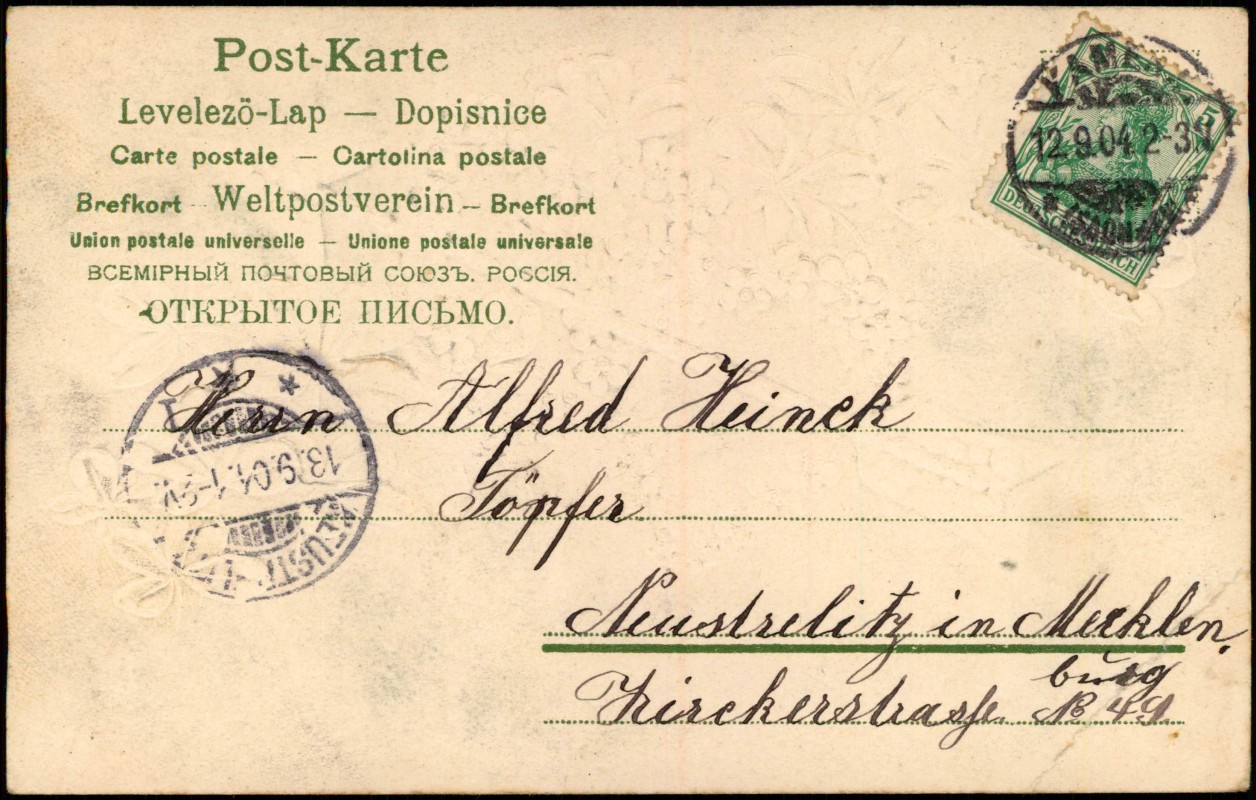 Post-Karte
Levelezö-Lap — Dopisnice
Carte postale — Cartolina postale
Brefkort Weltpostverein – Brefkort
Union postale universelle — Unione postale universale
ВСЕМІРНЫЙ ПОЧТОВЫЙ СОЮЗЪ. РОССІЯ.
ОТКРЫТОЕ ПИСЬМО.
5
12.9.04 2-3N
DEUTSCHES REICH
13.9.04.
Herrn Alfred Heinck
Töpfer
Neustrelitz in Mecklen,
burg
N 49